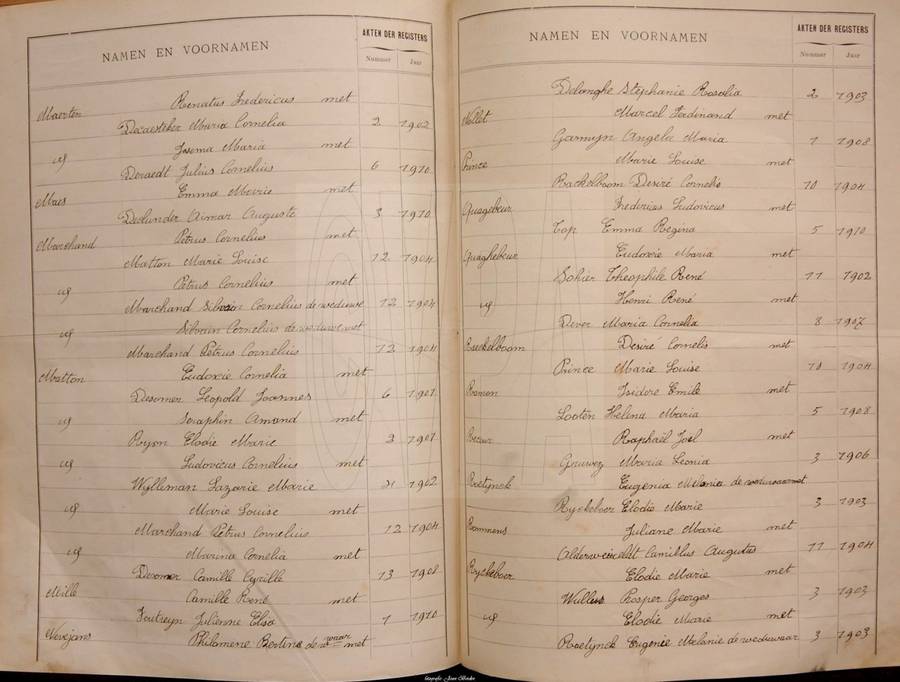 NAMEN EN VOORNAMEN AKTEN DER REGISTERS
Nummer Jaar
Maerten Renatus Fredericus met
Decaesteker Maria Cornelia 2 1902
id Irema Maria met
Deraedt Julius Cornelius 6 1910
Maes Emma Marie met
Aimar Auguste 3 1910
Marchand Petrus Cornelius met
Matton Marie Louise 12 1904
id Petrus Cornelius met
Marchand Silvain Cornelius de weduwe 12 1904
id Silvain Cornelius de weduwe met
Marchand Petrus Cornelius 12 1904
Matton Eudoxie Cornelia met
Desomer Leopold Joannes 6 1901
id Seraphin Amand met
Ryon Elodie Marie 3 1901
id Ludovicus Cornelius met
Wylleman Lazarie Marie 1902
id Marie Louise met
Marchand Petrus Cornelius 12 1904
id Marina Cornelia met
Desomer Camille Cyrille 13 1908
Mille Camille René met
Foutreyn Julienne Elsa 1 1910
Nevejans Philomene Bertine de wwaar met
NAMEN EN VOORNAMEN AKTEN DER REGISTERS
Nummer Jaar
Delanghe Stephanie Rosalia 2 1903
Nollet Marcel Ferdinand met
Garmyn Angela Maria 1 1908
Prince Marie Louise met
Raekelboom Desiré Cornelis 10 1904
Quagebeur Fredericus Ludovicus met
Top Emma Regina 5 1910
Quaghebeur Eudoxie Maria met
Sohier Theophile René 11 1902
id Henri René met
Dever Maria Cornelia 8 1907
Raeckelboom Desiré Cornelis met
Prince Marie Louise 10 1904
Ramon Isidore Emile met
Looten Helena Maria 5 1908
Recour Raphaël Joël met
Gruwez Maria Leonia 3 1906
Roetynck Eugenia Melania de weduwaar met
Ryckeboer Elodie Marie 3 1903
Rommens Juliane Marie met
Alderweireldt Camillus Augustus 11 1904
Ryckeboer Elodie Marie met
Wullus Prosper Georges 3 1903
id Elodie Marie met
Roetynck Eugenie Melanie de weduwaar 3 1903